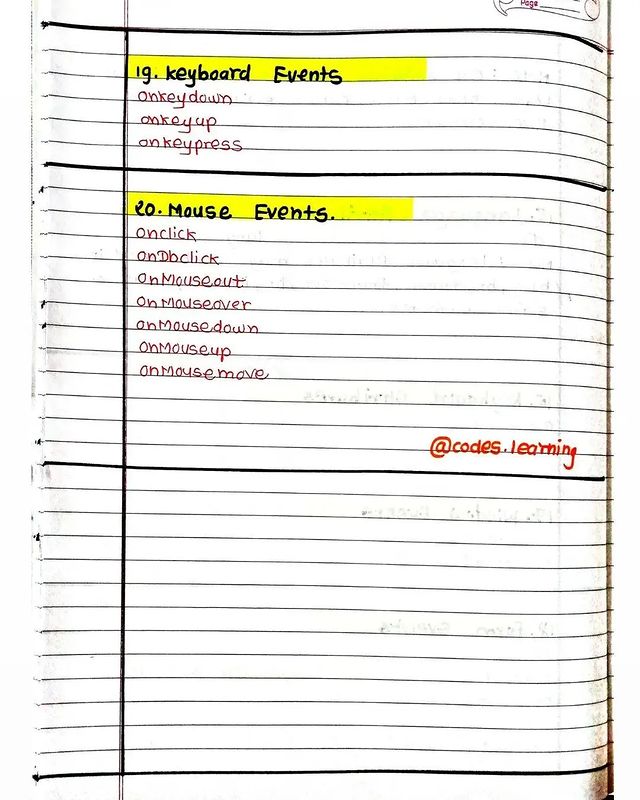 Page
19. Keyboard Events
onkeydown
onkeyup
onkeypress
20. Mouse Events.
onclick
onDbclick
onMouseout
onMouseover
onMousedown
onMouseup
onMousemove
@codes.learning